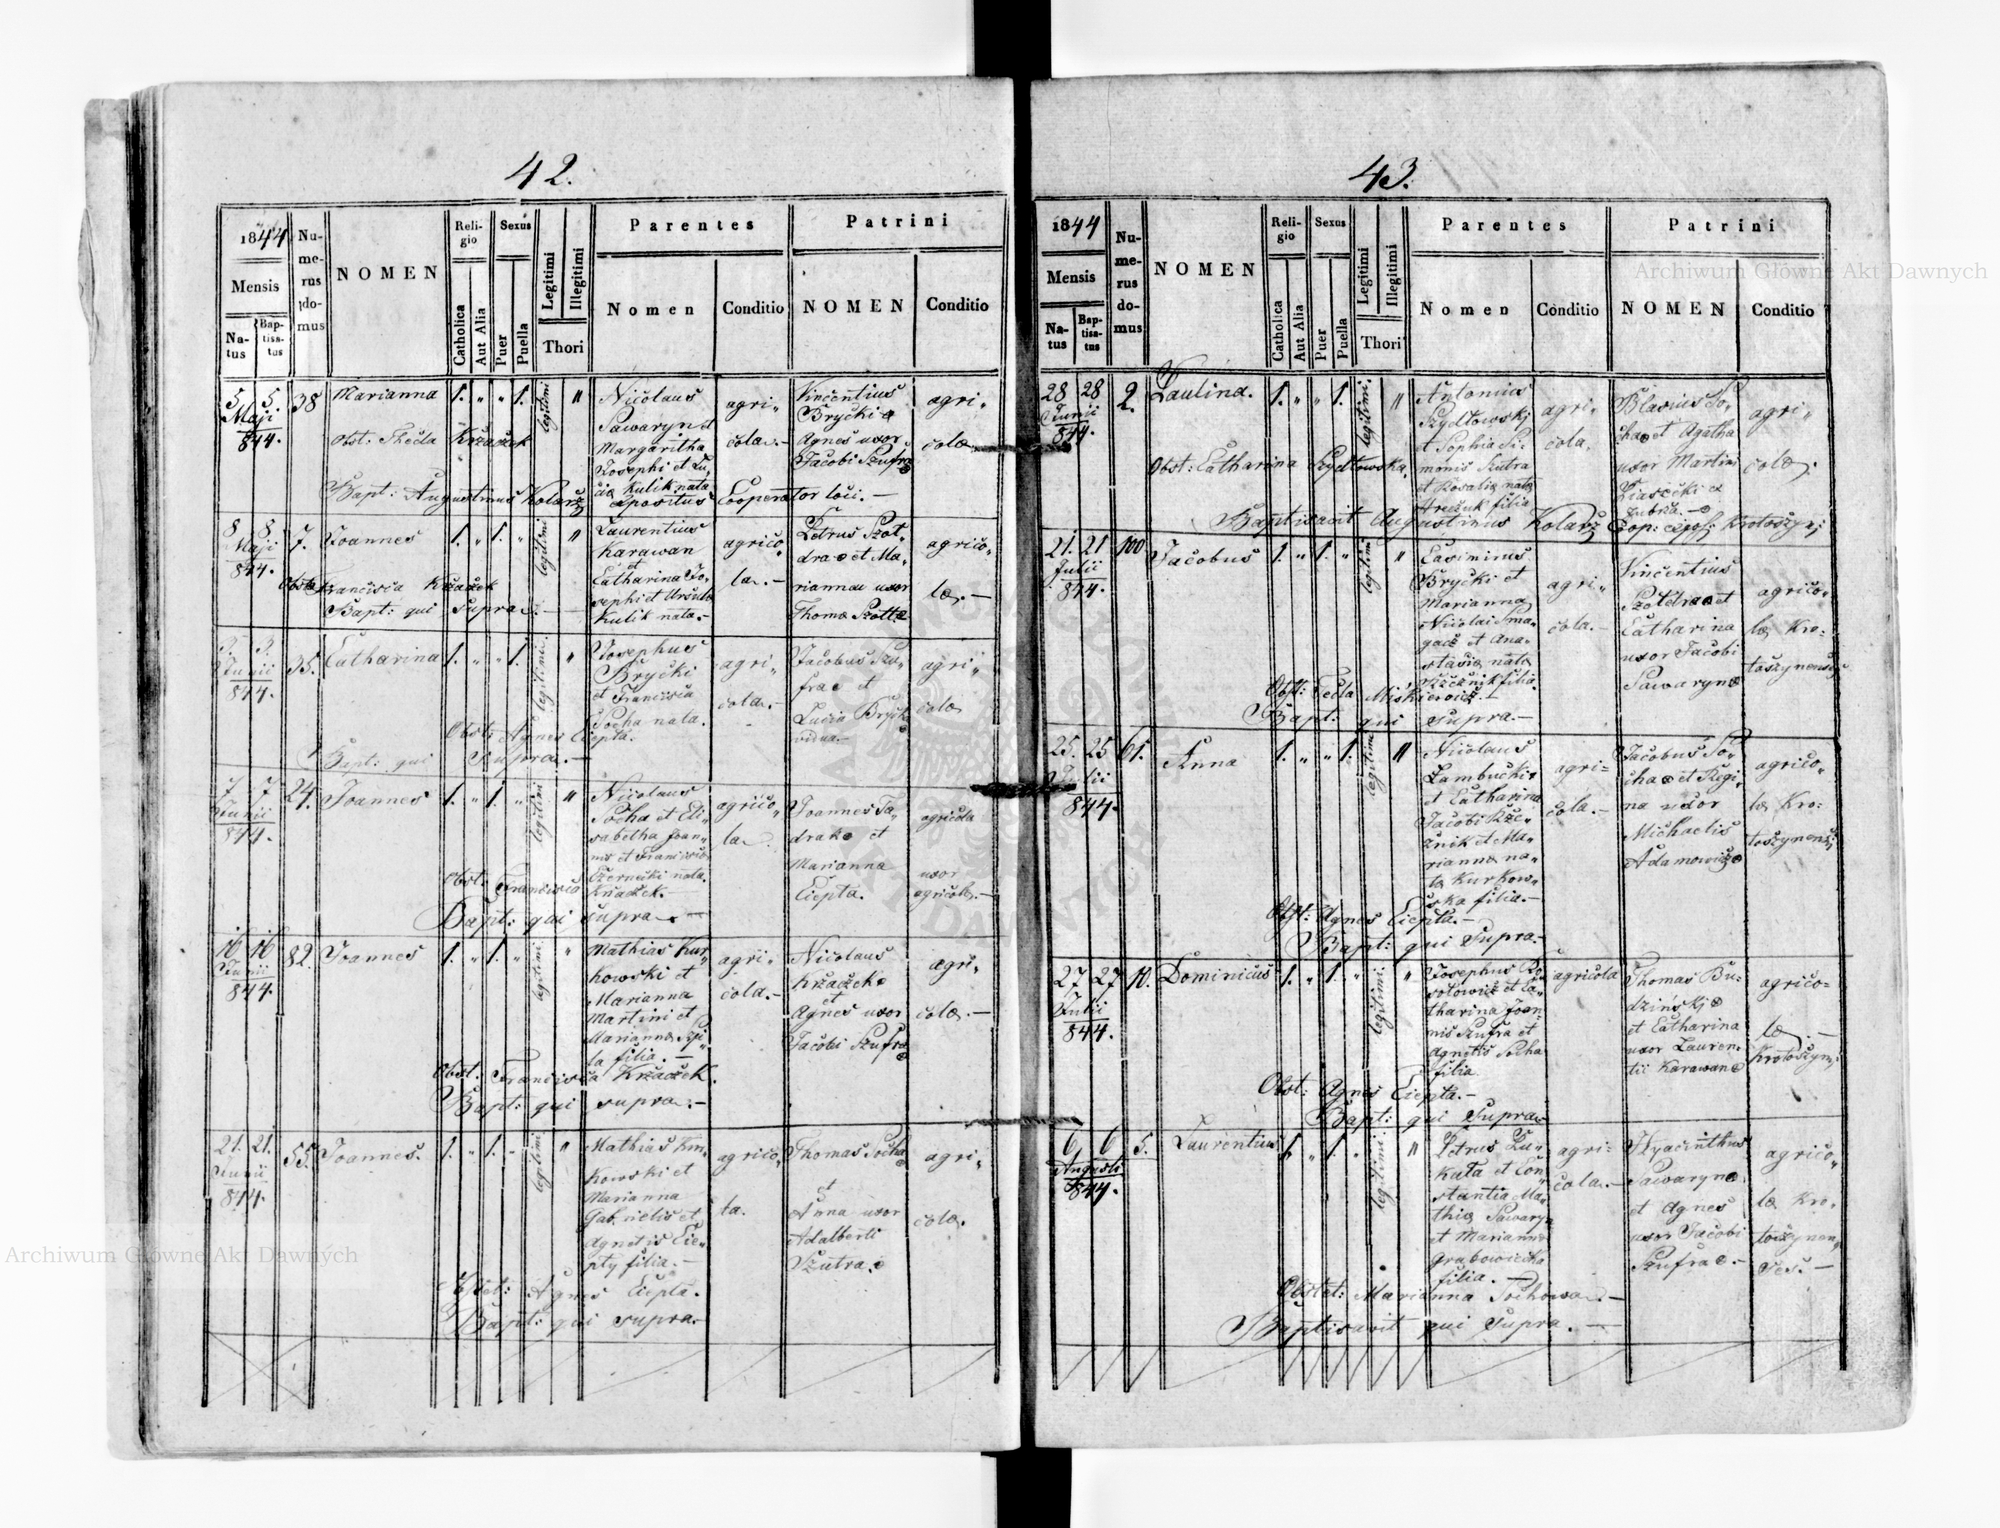 42.
1844
Mensis
Na-
tus
Bap-
tisa-
tus
Nu-
me-
rus
do-
mus
NOMEN
Reli-
gio
Catholica
Aut Alia
Sexus
Puer
Puella
Legitimi
Illegitimi
Thori
Parentes
Nomen
Conditio
Patrini
NOMEN
Conditio
5 5.
Maji
844.
38
Marianna
1. " " 1.
legitimi
"
Nicolaus
Pawaryn et
Margaritha
Josephi et Lu-
cia Kulik nata
agri-
cola.-
Vincentius
Brycki
Agnes uxor
Jacobi Szufra
agri-
colæ
obst: Thecla Krzaczek
Bapt: Augustinus Kolarz Expositus Cooperator loci.-
8 8.
Maji
844.
7.
Joannes
1. " 1. "
legitimi
"
Laurentius
Karawan
et
Catharina Jo-
sephi et Ursula
Kulik nata.-
agrico-
la.-
Petrus Szol-
dra et Ma-
rianna uxor
Thoma
agrico-
læ.-
Obst: Francisca Krzaczek
Bapt: qui supra.-
3. 3.
Junii
844.
35.
Catharina
1. " " 1.
legitimi
"
Josephus
Brycki
et Francisca
Socha nata.
agri-
cola.-
Jacobus Szu-
fra et
Lucia Bryck
vidua.-
agri-
colæ
Obst: Agnes Ciepta.
Bapt: qui supra.-
7 7
Junii
844.
24.
Joannes
1. " 1. "
legitimi
"
Nicolaus
Socha et Eli-
sabetha Joan-
nis et Francisca
Czernecki nata.
agrico-
la
Joannes Sa-
drak et
Marianna
Ciepta.
agricola
uxor
agricola.-
Obst: Francisca Krzaczek.-
Bapt: qui supra.-
16 16
Junii
844.
82.
Joannes
1. " 1. "
legitimi
"
Mathias Kur-
kowski et
Marianna
Martini et
Marianna
la filia.-
agri-
cola.-
Nicolaus
Krzaczek
et
Agnes uxor
Jacobi Szufra
agri-
colæ.-
Obst: Francisca Krzaczek.
Bapt: qui supra.-
21. 21.
Junii
844.
55.
Joannes.
1. " 1. "
legitimi
"
Mathias
kowski et
Marianna
Gabrielis et
Agnetis Cie-
pty filia.-
agrico-
la.
Thomas Socha
et
Anna uxor
Adalberti
Szutra
agri-
colæ.
Obst: Agnes Ciepta.
Bapt: qui supra.-
43.
1844
Mensis
Na-
tus
Bap-
tisa-
tus
Nu-
me-
rus
do-
mus
NOMEN
Reli-
gio
Catholica
Aut Alia
Sexus
Puer
Puella
Legitimi
Illegitimi
Thori
Parentes
Nomen
Conditio
Patrini
NOMEN
Conditio
28 28
Junii
844.
2.
Paulina.
1. " " 1.
legitimi.
"
Antonius
Szydtowski
et Sophia Si-
monis Szutra
et Rosalia nata
filia
agri-
cola.
Blasius So-
cha et Agatha
uxor Martini
Piasecki
agri-
colæ.
Obst: Catharina Szydtowska.
Baptisavit Augustinus Kolarz Coop: expos: Krotoszyn:
21. 21
Julii
844.
100
Jacobus
1. " 1. "
legitimi
"
Casimirus
Brycki et
Marianna
Nicolai Sma-
gacz et Ana-
stasia nata
filia.
agri-
cola.-
Vincentius
Szoldra et
Catharina
uxor Jacobi
Pawaryn
agrico-
læ Kro-
toszynenses
Obst: Tecla Miskiewicz.-
Bapt: qui supra.-
25. 25
Julii
844.
61.
Anna
1. " " 1.
legitimi
"
Nicolaus
Lambucki
et Catharina
Jacobi Rze-
znik et Ma-
rianna na-
ta Kurkow-
ska filia.-
agri-
cola.-
Jacobus So-
cha et Regi-
na uxor
Michaelis
Adamowicz
agrico-
læ Kro-
toszynens:
Obst: Agnes Ciepta.-
Bapt: qui supra.-
27 27
Julii
844.
10.
Dominicus
1. " 1. "
legitimi.
"
Josephus Bo-
sotowicz et Ca-
tharina Joan-
nis Szufra et
Agnetis Socha
filia
agricola
Thomas Bu-
dzinski
et Catharina
uxor Lauren-
tii Karawan
agrico-
læ.-
Krotoszyn:
Obst: Agnes Ciepta.-
Bapt: qui supra
6 6
Augusti
844.
5.
Laurentius
1. " 1. "
legitimi.
"
Petrus Lu-
kata et Con-
stantia Ma-
thia Pawaryn
et Marianna
Grabowiecka
filia.-
agri-
cola.-
Hyacinthus
Pawaryn
et Agnes
uxor Jacobi
Szufra.-
agrico-
læ Kro-
toszynen-
ses.-
Obstet: Marianna Sochowa.-
Baptisavit qui supra.-
Archiwum Główne Akt Dawnych
Archiwum Główne Akt Dawnych